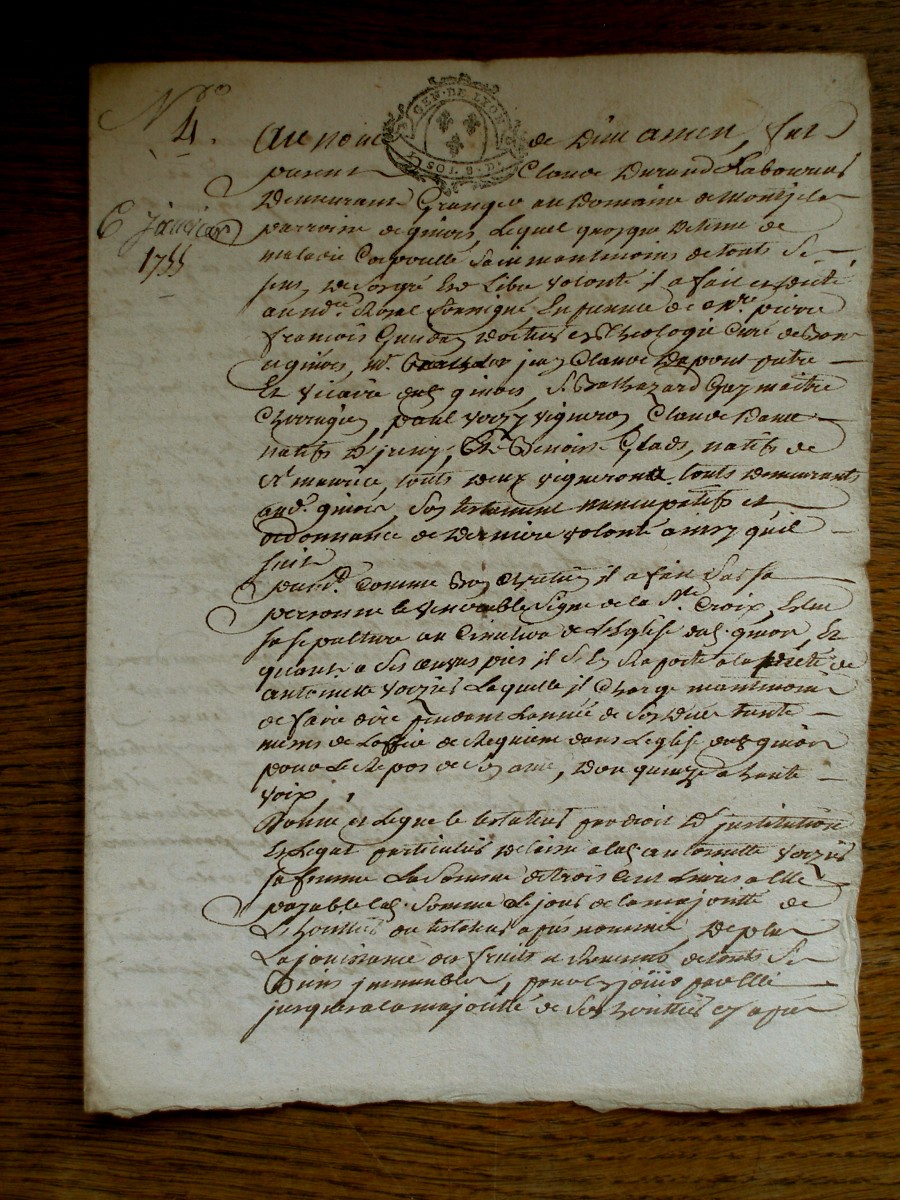 N.ro
4.
6 janvier
1755
GEN. DE LYON
Au nom de Dieu amen, fut
present Claude Durand Laboureur
Demeurant Granger au Domaine de
parroisse de givors, Lequel quoyque detenu de
maladie Corporelle sain neantmoins de touts Se
sens, de son gré et Libre volonté il a fait
au no.re Royal Soussigné En presence de m.re pierre
françois Docteur en Theologie Curé de
givors, M. Claude Dupont pretre
Et vicaire dud givors, S. Balthazard Gay maitre
Chirurgien, paul vigneron, Claude
natif D Benoist natifs de
St maurice, touts Deux vignerons touts Demeurants
aud. givors, Son testament nuncupatifs et
ordonnance de Derniere volonté ainsy qu'il
suit
Comme Bon Chretien il a fait sur sa
personne le venerable Signe de la Ste. Croix, Eslu
sa sepulture au Cimetiere de L'Eglise dud. givors, Et
quant a Ses œuvres pies il S'En Raporte a la pieté de
antoinette Laquelle il Charge neantmoins
de faire dire pendant L'année de Son Deces trente
messes de L'office de Requiem dans L'eglise dud. givors
pour Le Repos de Son ame, Dont quinze a haute
voix,
Donne et Legue le testateur par droit D'institution
Et Legat particulier Delaisse a lad. antoinette
sa femme La Somme de trois Cent Livres a Elle
payable lad. Somme Le jour de la majorité de
L'heritier du testateur apres nommé, De plus
La jouissance des fruits et Revenus de touts Se
Biens jmmeubles, pour En jouir par Elle
jusques a la majorité de Son heritier cy apres